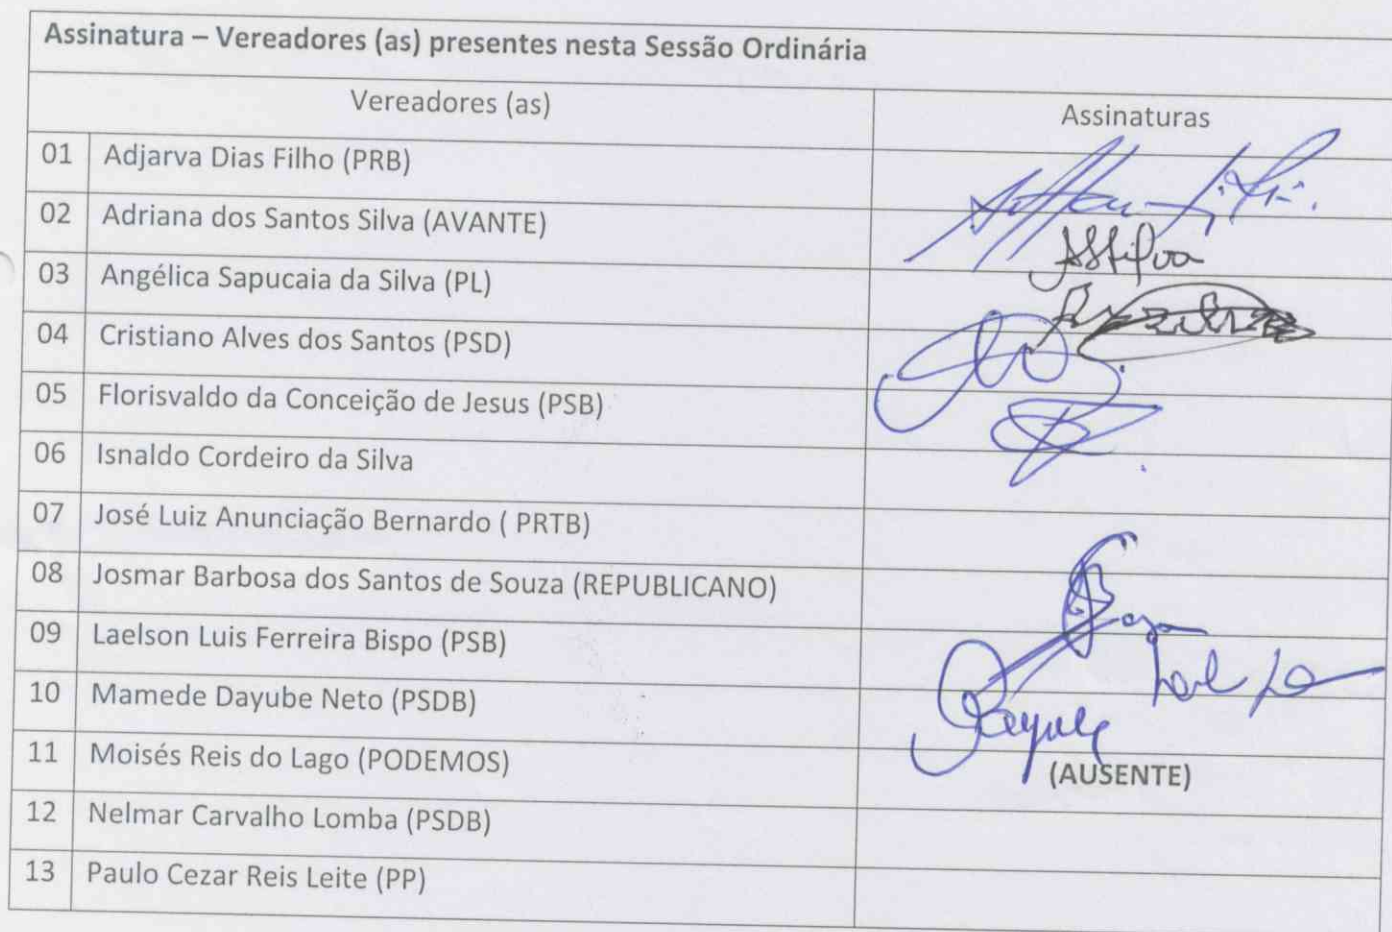 Assinatura – Vereadores (as) presentes nesta Sessão Ordinária
Vereadores (as) Assinaturas
01 Adjarva Dias Filho (PRB)
02 Adriana dos Santos Silva (AVANTE) ASSilva
03 Angélica Sapucaia da Silva (PL)
04 Cristiano Alves dos Santos (PSD)
05 Florisvaldo da Conceição de Jesus (PSB)
06 Isnaldo Cordeiro da Silva
07 José Luiz Anunciação Bernardo ( PRTB)
08 Josmar Barbosa dos Santos de Souza (REPUBLICANO)
09 Laelson Luis Ferreira Bispo (PSB)
10 Mamede Dayube Neto (PSDB)
11 Moisés Reis do Lago (PODEMOS) (AUSENTE)
12 Nelmar Carvalho Lomba (PSDB)
13 Paulo Cezar Reis Leite (PP)